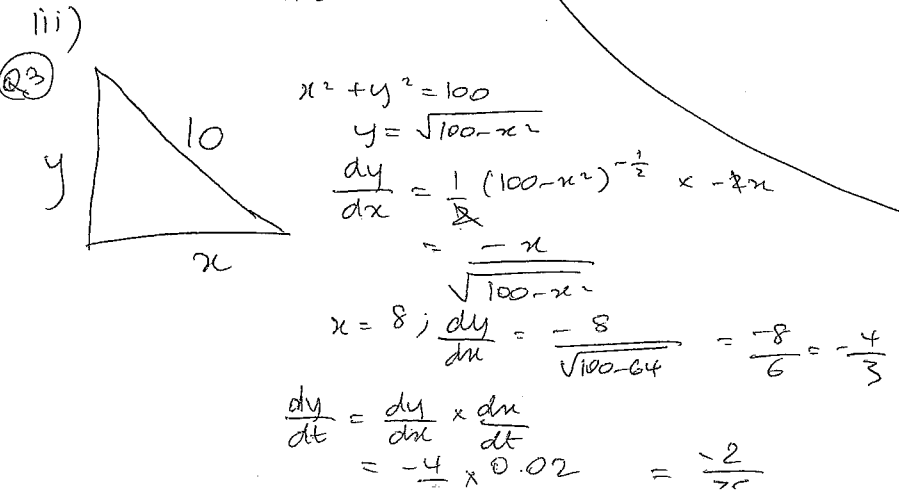 iii)
Q3
y
10
x
x² + y² = 100
y = √100-x²
dy/dx = 1/2 (100-x²)^-1/2 × -2x
= -x/√100-x²
x = 8 ; dy/dx = -8/√100-64 = -8/6 = -4/3
dy/dt = dy/dx × dx/dt
= -4 × 0.02 = -2